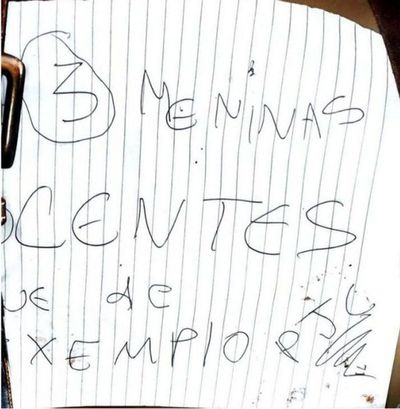 3 MENINAS
OCENTES
UE de
XEMPlO